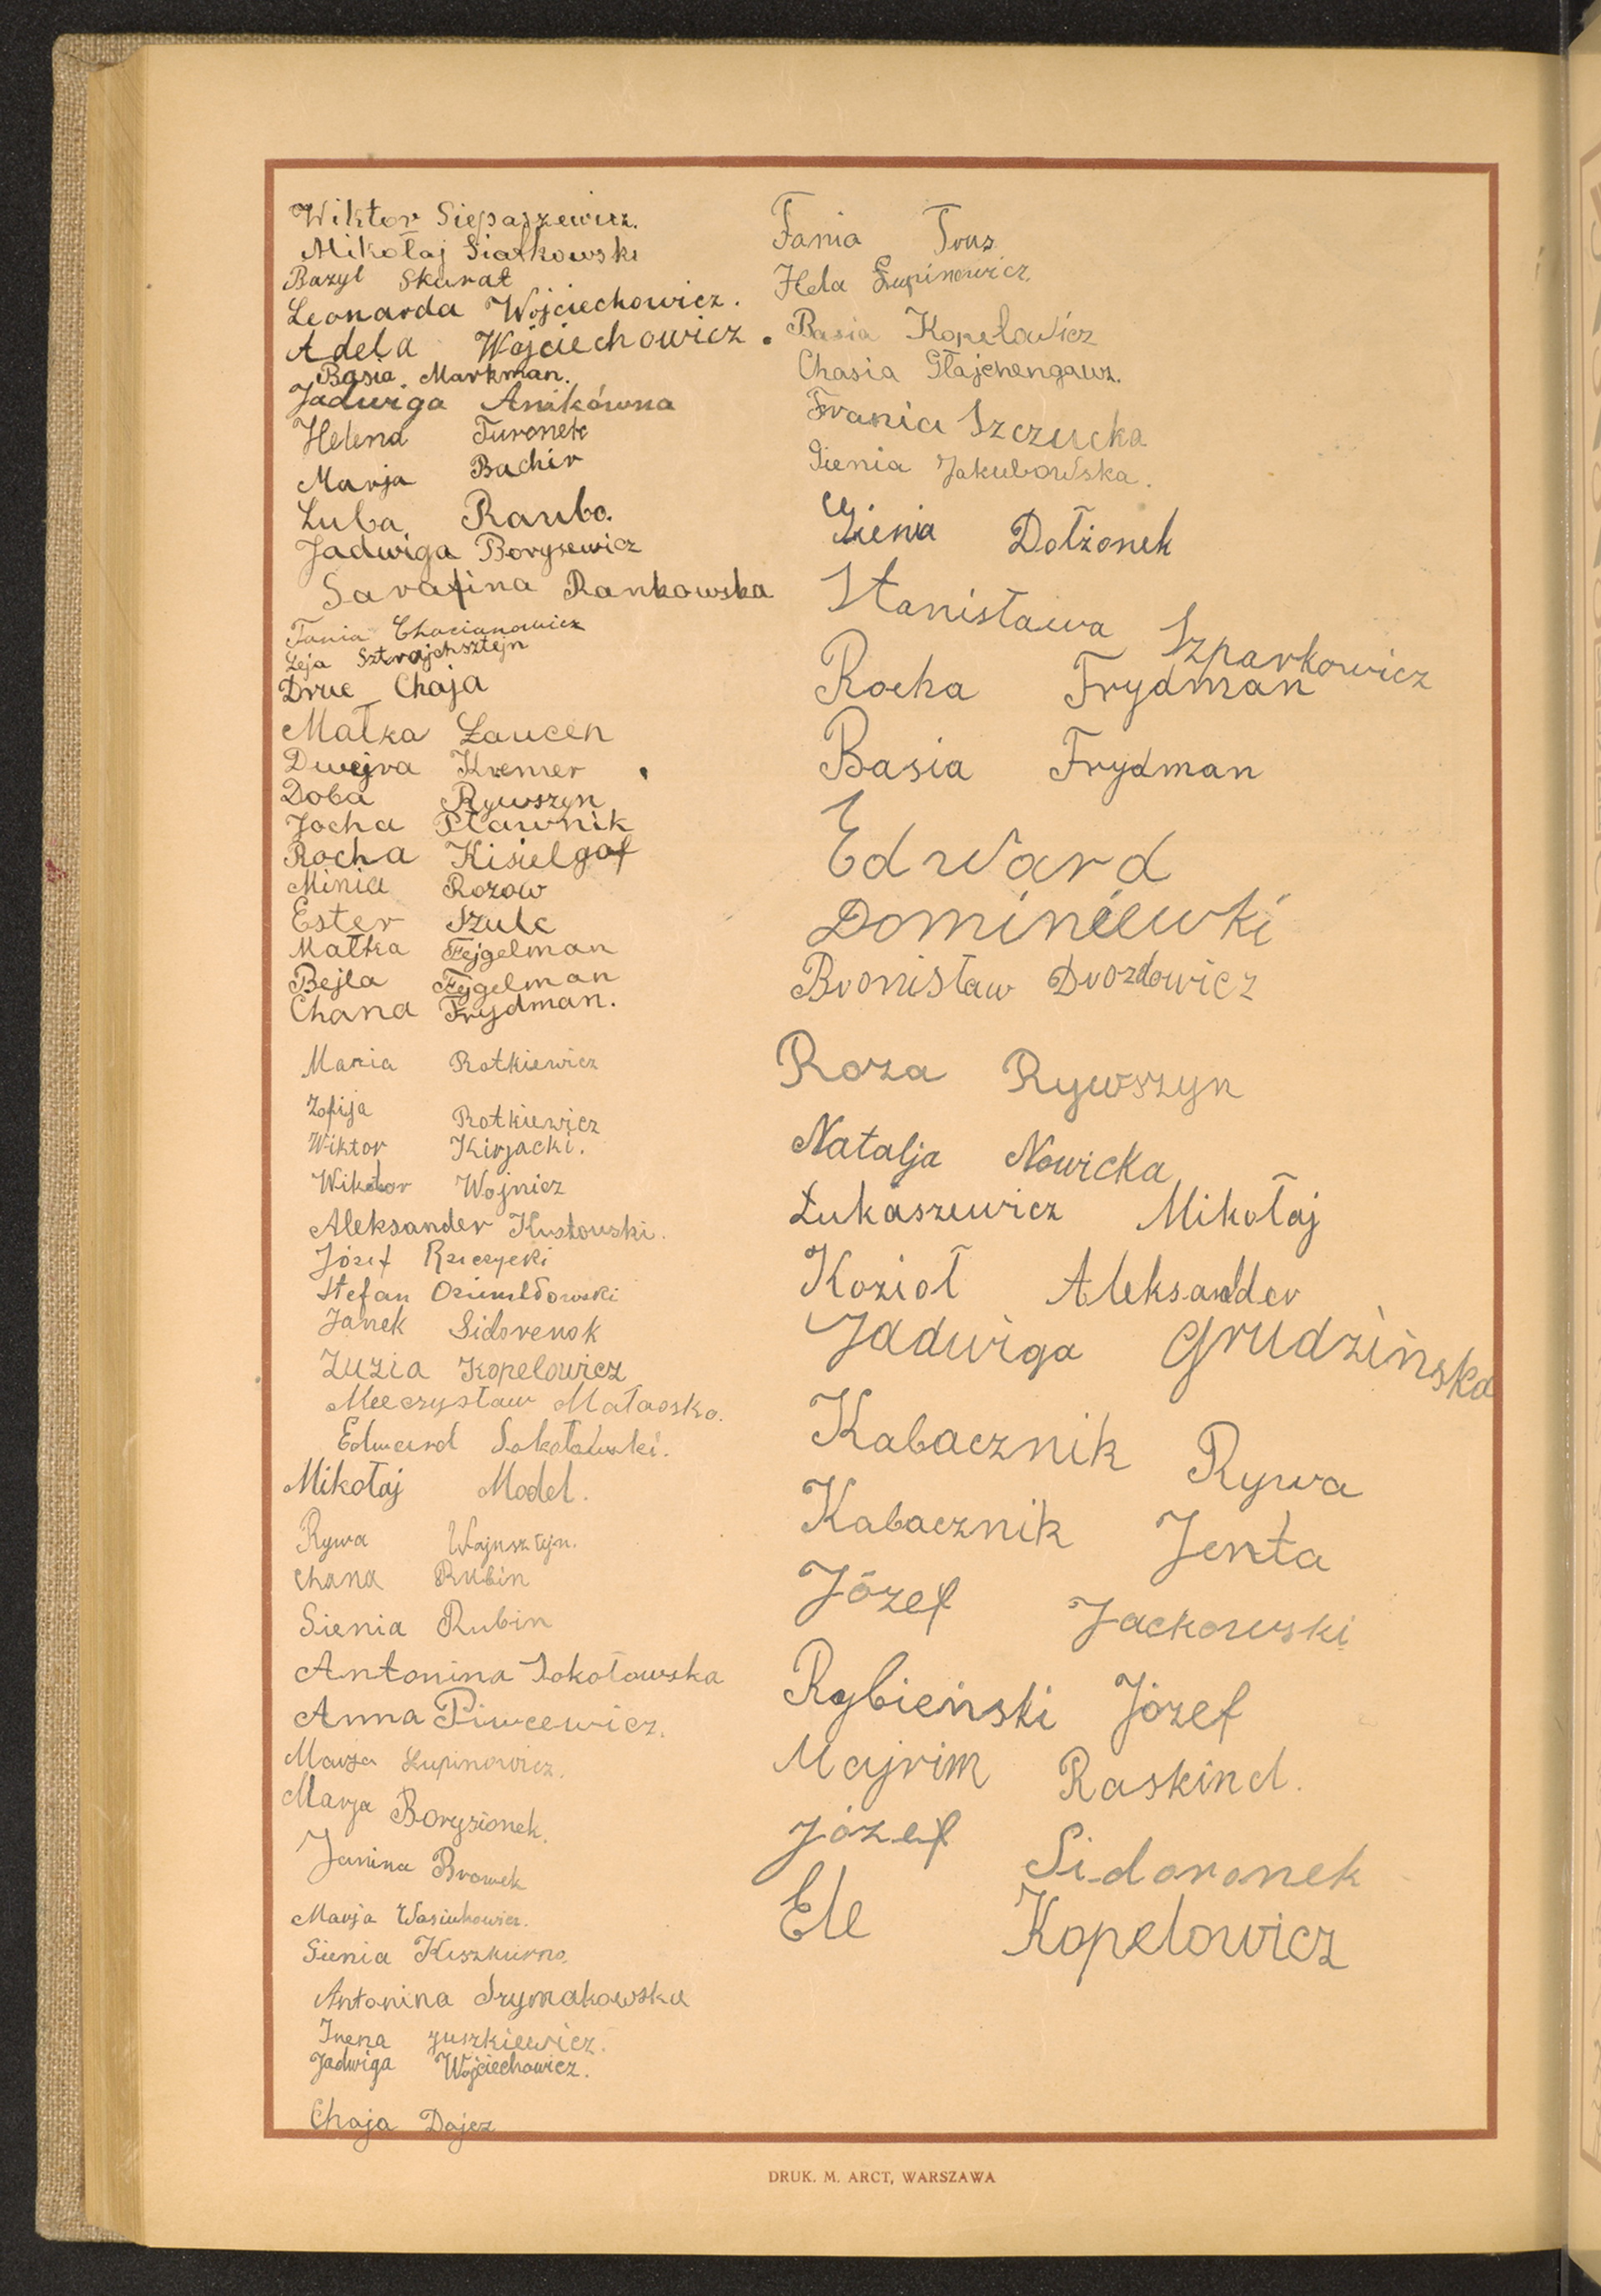 Wiktor Siepaszewicz.
Mikołaj Siatkowski
Bazyl Skurat
Leonarda Wojciechowicz.
Adela Wojciechowicz.
Basia Markman.
Jadwiga Anikówna
Helena Turonek
Marja Bachir
Luba Raubo.
Jadwiga Borysewicz
Sarafina Rankowska
Tania Chocianowicz
Leja Sztrajchsztejn
Druc Chaja
Małka Laucen
Dwejra Kremer
Doba Rywszyn
Jocha Pławnik
Rocha Kisielgof
Minia Rozow
Ester Szulc
Małka Fejgelman
Bejla Fejgelman
Chana Frydman.
Maria Rotkiewicz
Zofija Rotkiewicz
Wiktor Kirjacki.
Wiktor Wojnicz
Aleksander
Józef Rzeczycki
Stefan
Janek Sidorenok
Zuzia Kopelowicz
Mieczysław
Edward Sokołowski.
Mikołaj Model.
Rywa Wajnsztejn.
Chana Rubin
Sienia Rubin
Antonina Sokołowska
Anna Piwcewicz.
Marja Łupinowicz.
Marja Borysionek.
Janina Browek
Marja Wasiukowicz.
Sienia Kiszkurno.
Antonina Szymakowska
Irena Juszkiewicz.
Jadwiga Wojciechowicz.
Chaja Dajcz
Fania Trus
Hela Łupinowicz.
Basia Kopelowicz
Chasia Głajchengauz.
Frania Szczucka
Gienia Jakubowska.
Gienia Dołżonek
Stanisława Szparkowicz
Rocha Frydman
Basia Frydman
Edward
Bronisław Drozdowicz
Roza Rywszyn
Natalja Nowicka
Łukaszewicz Mikołaj
Kozioł Aleksander
Jadwiga Grudzińska
Kabacznik Rywa
Kabacznik Jenta
Józef Jackowski
Rybieński Józef
Majrim Raskind.
Józef Sidoronek
Ele Kopelowicz
DRUK. M. ARCT, WARSZAWA